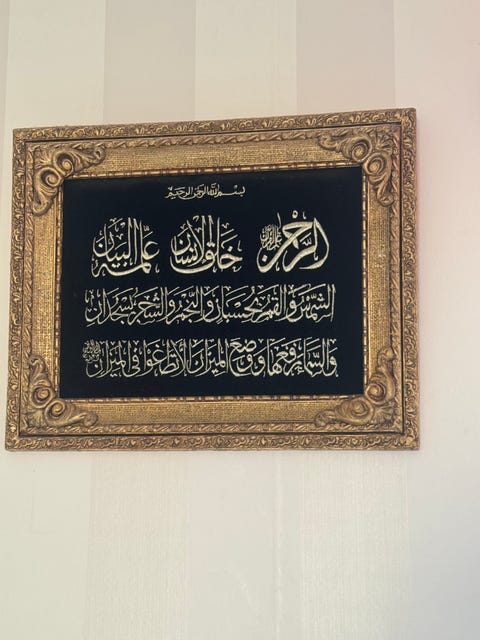 بسم الله الرحمن الرحيم
الرحمن علم القرآن خلق الإنسان علمه البيان
الشمس والقمر بحسبان والنجم والشجر يسجدان
والسماء رفعها ووضع الميزان ألا تطغوا في الميزان